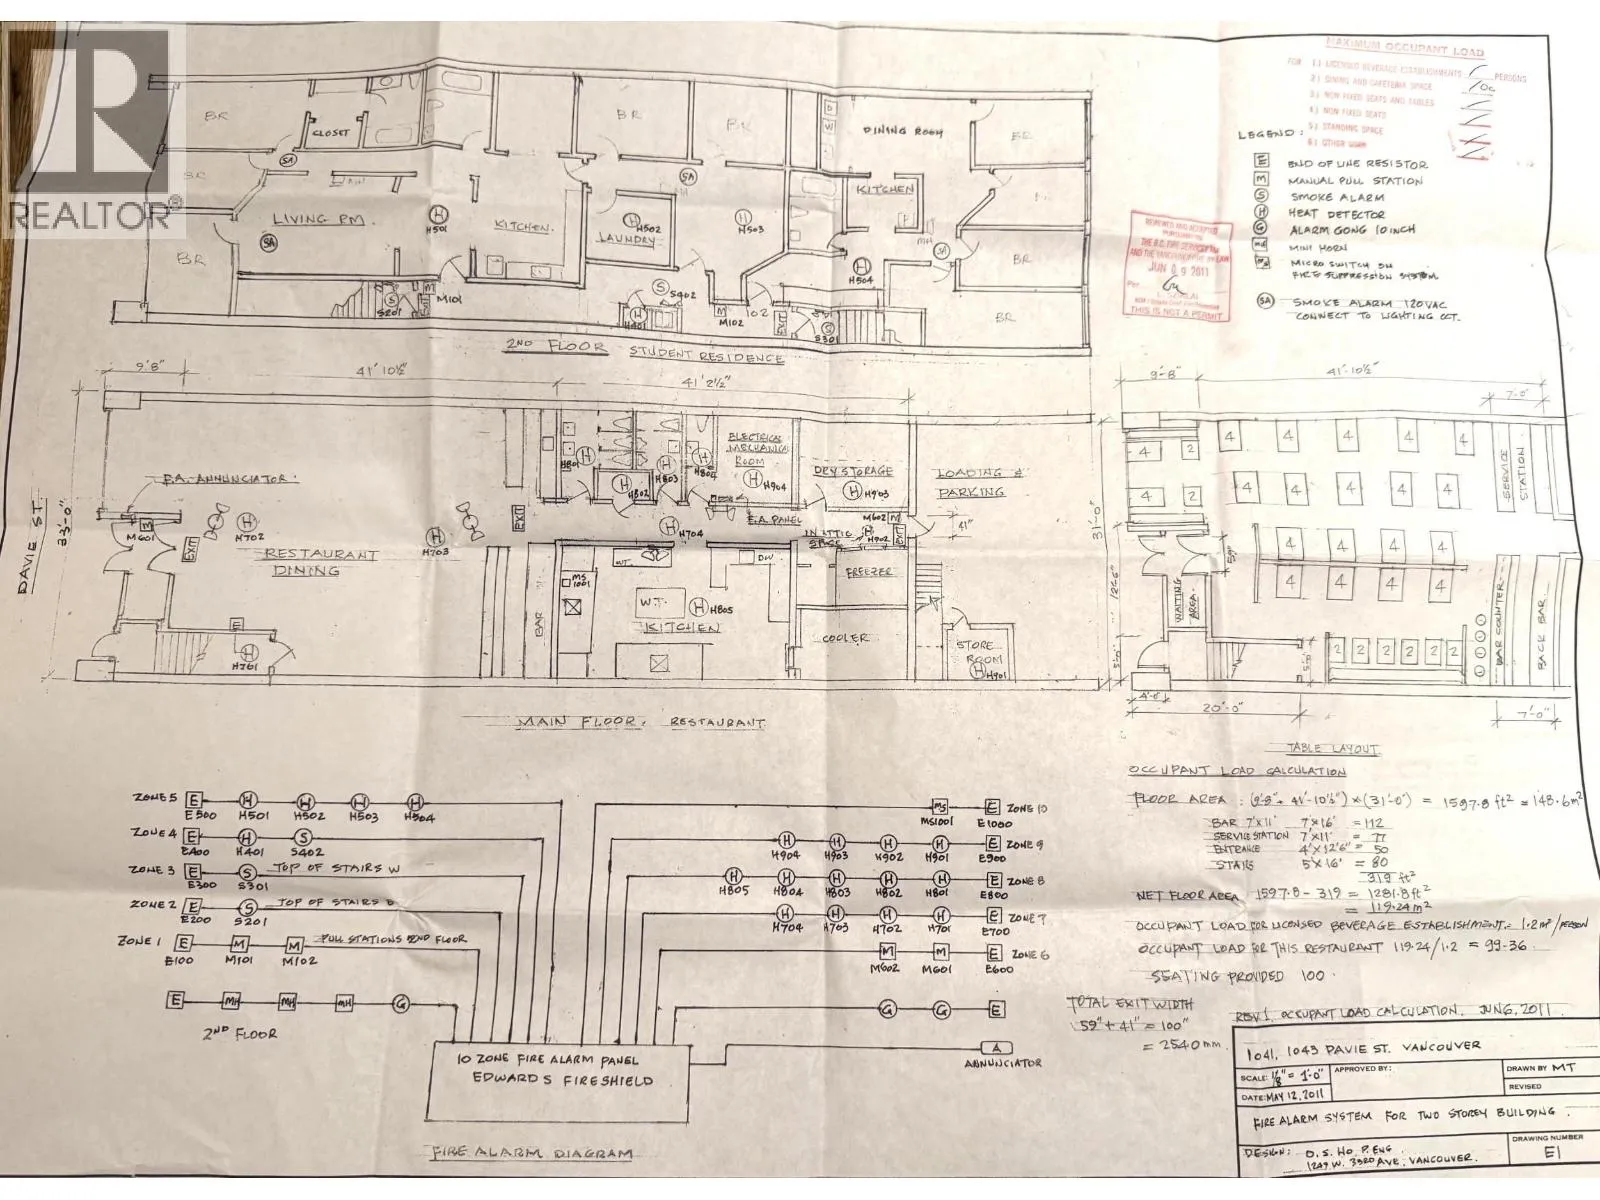 REALTOR®
MAXIMUM OCCUPANT LOAD
FOR 1.) LICENSED BEVERAGE ESTABLISHMENTS PERSONS
2.) DINING AND CAFETERIA SPACE 100
3.) NON FIXED SEATS AND TABLES
4.) NON FIXED SEATS
5.) STANDING SPACE
6.) OTHER
LEGEND:
E END OF LINE RESISTOR
M MANUAL PULL STATION
S SMOKE ALARM
H HEAT DETECTOR
G ALARM GONG 10 INCH
MH MINI HORN
MS MICRO SWITCH ON
FIRE SUPPRESSION SYSTEM
SA SMOKE ALARM 120VAC
CONNECT TO LIGHTING CCT.
REVIEWED AND ACCEPTED
PURSUANT TO
THE B.C. FIRE SERVICES ACT
AND THE VANCOUVER FIRE BY-LAW
JUN 09 2011
Per
THIS IS NOT A PERMIT
BR
CLOSET
BR
BR
D
W
DINING ROOM
BR
SA
SA
BR
LIVING RM.
H
H501
KITCHEN
H
H502
LAUNDRY
H
H503
KITCHEN
MH
SA
BR
SA
BR
H
H504
BR
M
M101
S
S201
S
S402
H
H401
M
M102
102
EXIT
S
S301
2ND FLOOR STUDENT RESIDENCE
9'8"
41' 10½"
41' 2½"
9'-8"
41'-10½"
7'-0"
DAVIE ST.
33'-0"
F.A. ANNUNCIATOR.
M
M601
EXIT
H
H702
RESTAURANT
DINING
H
H703
EXIT
H801
H
H802
H
H803
H
H804
ELECTRICAL
MECHANICAL
ROOM
H
H904
DRY STORAGE
H
H903
LOADING &
PARKING
F.A. PANEL
H
H704
IN ATTIC
SPACE
M602 M
H902
EXIT
41"
FREEZER
COOLER
STORE
ROOM
H
H901
MS
1001
W.T.
DW
W.T.
H
H805
KITCHEN
BAR
E
H
H701
MAIN FLOOR. RESTAURANT
31'-0"
12'6"
5'-0"
4 2
4 2
4 4 4 4 4
4 4 4 4 4
4 4 4 4
4 4 4 4
2 2 2 2 2
59"
WAITING
AREA.
SERVICE
STATION
BAR COUNTER
BACK BAR.
5'-0"
4'-0"
20'-0"
7'-0"
TABLE LAYOUT
OCCUPANT LOAD CALCULATION
FLOOR AREA : (9'-8" + 41'-10½") × (31'-0") = 1597.8 ft² = 148.6 m²
BAR 7'×11' 7'×16' = 112
SERVICE STATION 7'×11' = 77
ENTRANCE 4'×12'6" = 50
STAIRS 5'×16' = 80
319 ft²
NET FLOOR AREA 1597.8 - 319 = 1281.8 ft²
= 119.24 m²
OCCUPANT LOAD FOR LICENSED BEVERAGE ESTABLISHMENT = 1.2 m²/PERSON
OCCUPANT LOAD FOR THIS RESTAURANT 119.24/1.2 = 99.36.
SEATING PROVIDED 100.
TOTAL EXIT WIDTH
59" + 41" = 100"
= 2540 mm.
REV 1. OCCUPANT LOAD CALCULATION. JUN 6, 2011.
ZONE 5 E H H H H
E500 H501 H502 H503 H504
ZONE 4 E H S
E400 H401 S402
ZONE 3 E S TOP OF STAIRS W
E300 S301
ZONE 2 E S TOP OF STAIRS
E200 S201
ZONE 1 E M M PULL STATIONS 2ND FLOOR
E100 M101 M102
E MH MH MH G
2ND FLOOR
MS E ZONE 10
MS1001 E1000
H H H H E ZONE 9
H904 H903 H902 H901 E900
H H H H H E ZONE 8
H805 H804 H803 H802 H801 E800
H H H H E ZONE 7
H704 H703 H702 H701 E700
M M E ZONE 6
M602 M601 E600
G G E
A
ANNUNCIATOR
10 ZONE FIRE ALARM PANEL
EDWARDS FIRESHIELD
FIRE ALARM DIAGRAM
1041, 1043 DAVIE ST. VANCOUVER
SCALE: ⅛" = 1'-0"
APPROVED BY:
DRAWN BY MT
DATE: MAY 12, 2011
REVISED
FIRE ALARM SYSTEM FOR TWO STOREY BUILDING.
DESIGN: D. S. HO P.ENG.
1249 W. 33RD AVE, VANCOUVER.
DRAWING NUMBER
E1